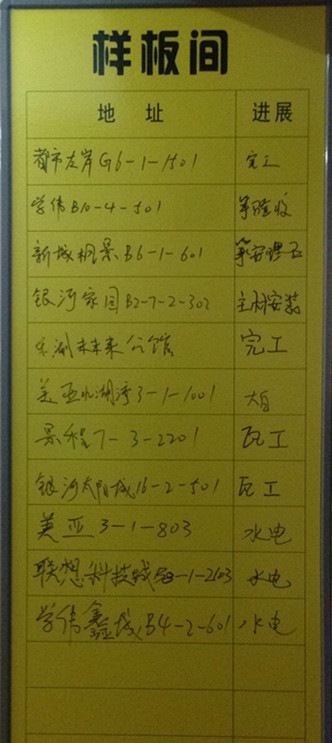 样板间
地址 进展
都市左岸G6-1-1501 完工
学伟B10-4-501 等验收
新城枫景B6-1-601 等安理石
银河家园B2-7-2-302 主材安装
未来公馆 完工
美亚水湖湾3-1-1001 大白
景程7-3-2201 瓦工
银河太阳城16-2-501 瓦工
美亚3-1-803 水电
联想科技城-1-2603 水电
学伟鑫城B4-2-601 水电